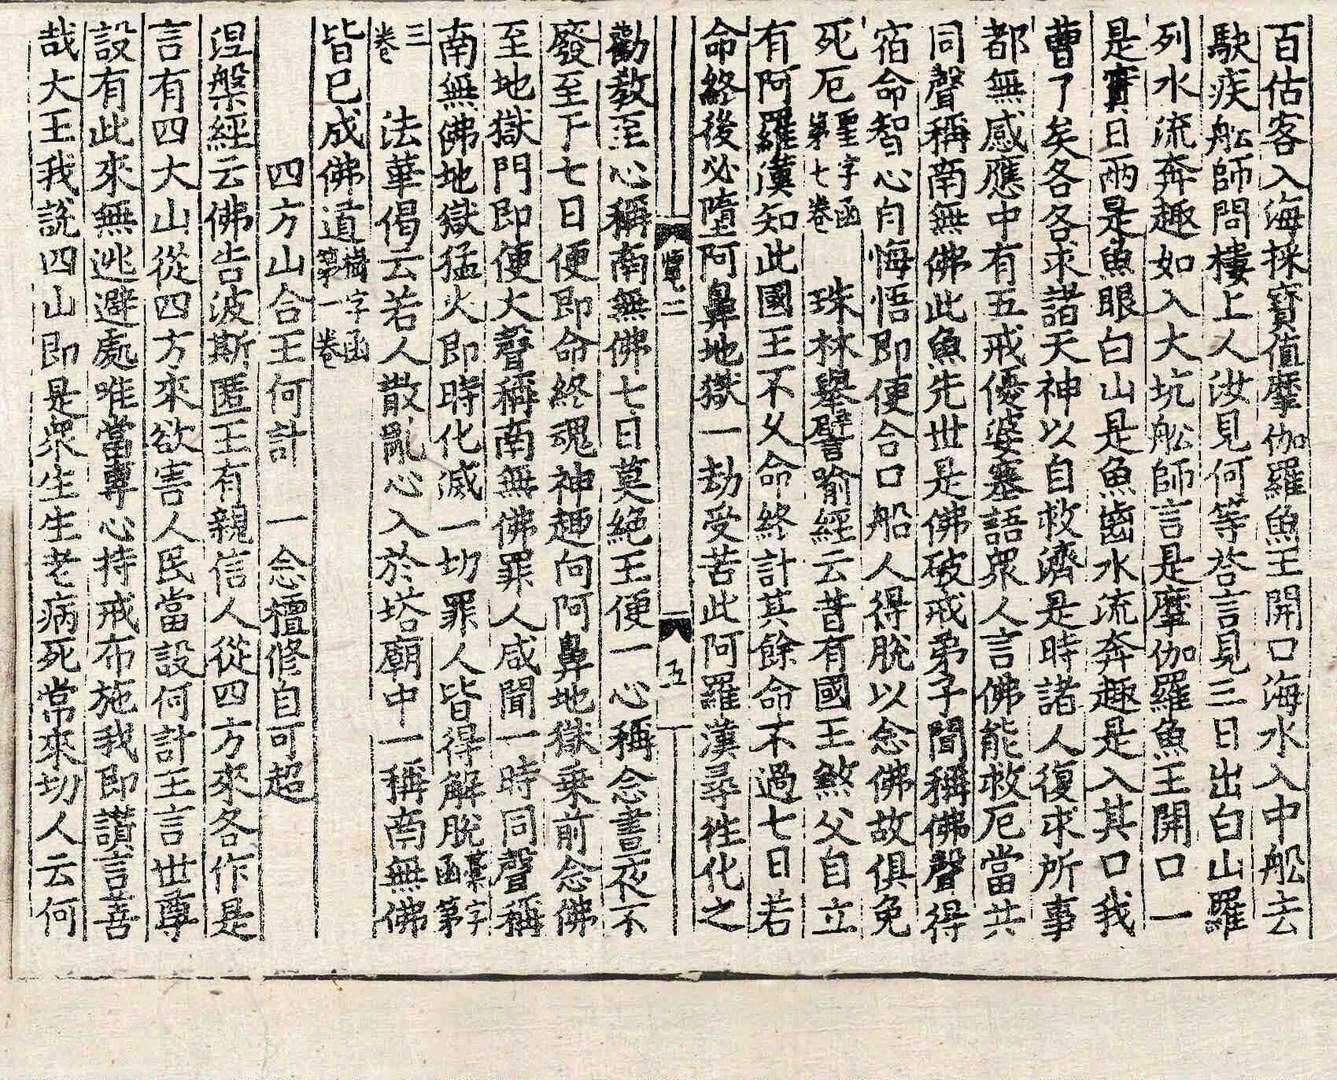 百估客入海採寶值摩伽羅魚王開口海水入中舩去
駛疾舩師問樓上人汝見何等答言見三日出白山羅
列水流奔趣如入大坑舩師言是摩伽羅魚王開口一
是實日兩是魚眼白山是魚齒水流奔趣是入其口我
曹了矣各各求諸天神以自救濟是時諸人復求所事
都無感應中有五戒優婆塞語眾人言佛能救厄當共
同聲稱南無佛此魚先世是佛破戒弟子聞稱佛聲得
宿命智心自悔悟即便合口船人得脫以念佛故俱免
死厄聖字函第七卷　珠林舉譬喻經云昔有國王煞父自立
有阿羅漢知此國王不久命終計其餘命不過七日若
命終後必墮阿鼻地獄一劫受苦此阿羅漢尋往化之
覽二　五
勸教至心稱南無佛七日莫絕王便一心稱念晝夜不
廢至于七日便即命終魂神趣向阿鼻地獄乗前念佛
至地獄門即便大聲稱南無佛罪人咸聞一時同聲稱
南無佛地獄猛火即時化滅一切罪人皆得解脫藁字函第
三卷　法華偈云若人散亂心入於塔廟中一稱南無佛
皆已成佛道樹字函第一卷
四方山合王何計　一念檀修自可超
涅槃經云佛告波斯匿王有親信人從四方來各作是
言有四大山從四方來欲害人民當設何計王言世尊
設有此來無逃避處唯當專心持戒布施我即讚言善
哉大王我說四山即是眾生生老病死常來切人云何